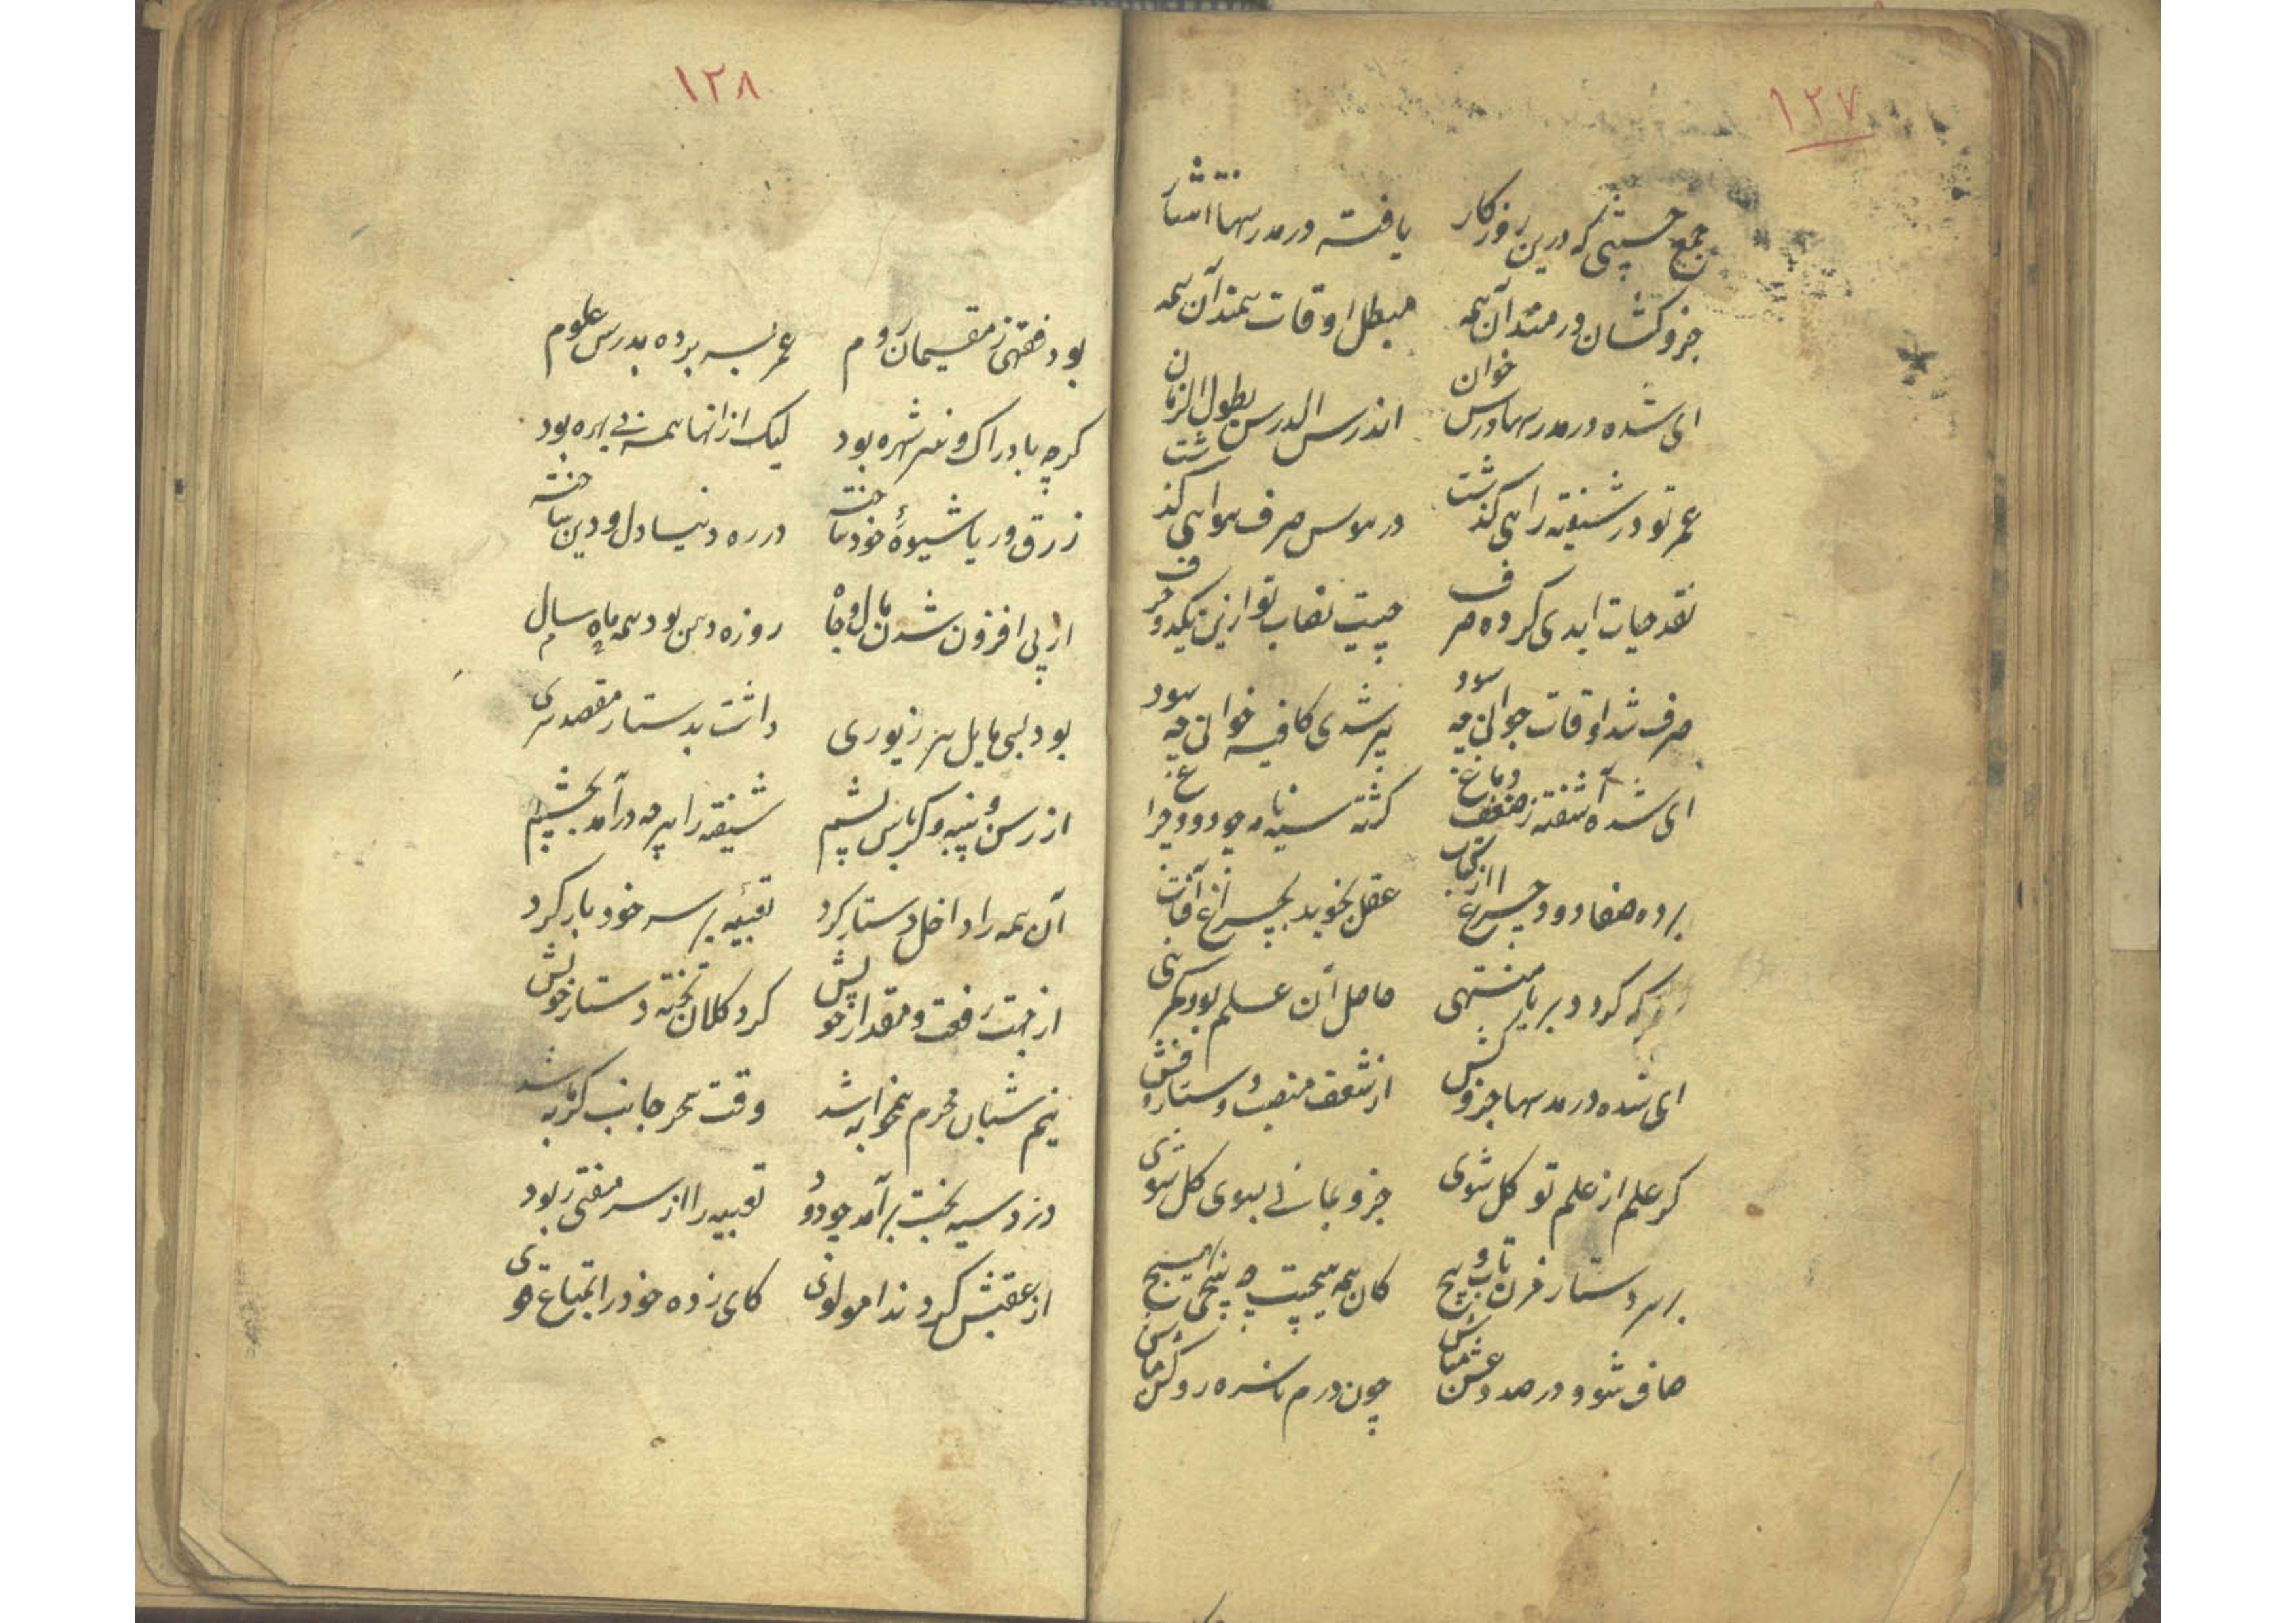 ١٢٧
جمع خسیسی که درین روزکار یافته در مدرسها انتشار
جزو کشان در مدآن همه مبطل اوقات همندآن همه
ای شده در مدرسها درس خوان اندرس الدرس بطول الزمان
عمر تو در شیفته رایی کذشت در هوس صرف هوایی کذشت
نقد حیات ابدی کرده صرف چیست نصاب تو ازین یکدو حرف
صرف شد اوقات جوانی چه سود پیر شدی کافیه خوانی چه سود
ای شده آشفته ز ضعف دماغ کشته سیه نامه چو دود چراغ
برده ضیا دود چراغ از عقل نجوید بچراغ آفتاب
هرکه کرد و بریا منتهی حاصل آن علم بود کمرهی
ای شده در مدرسها جزو کش از شعف منصب و دستار و فش
کر علم از علم تو کل شوی جزو بمانی بسوی کل شوی
بر سر دستار مزن تاب و پیچ کان همه هیچست چه پیچی بهیچ
صاف شو و در صدد غش مباش چون درم ناسره روکش مباش
١٢٨
بود فقهی ز مقیمان روم عمر بسر برده بدرس علوم
کرچه بادراک و هنر شهره بود لیک از انها همه بی بهره بود
زرق و ریا شیوهٔ خود ساخته در ره دنیا دل و دین باخته
از پی افزون شدن مال و جاه روزه دهن بود همه ماه سال
بود لبی مایل هر زیوری داشت بدستار مقصد سری
از رسن و پنبه و کرباس پشم شیفته را هرچه درآمد بچشم
آن همه را داخل دستار کرد تعبیه بر سر خود بار کرد
از جهت رفعت و مقدار خویش کرد کلان تخته دستار خویش
نیم شبان محرم بمخرابه شد وقت سحر جانب کرمابه شد
دزد سیه بخت برآمد چو دود تعبیه را از سر مفتی ربود
از عقبش کرد ندا مولوی کای زده خود را بمتاع قوی